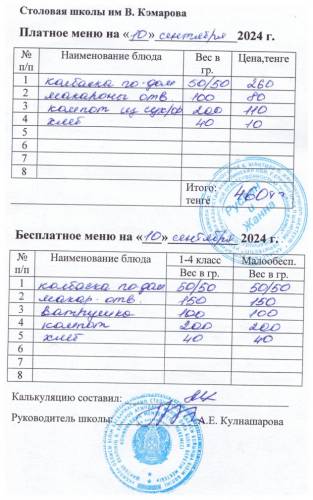 Столовая школы им В. Комарова
Платное меню на «10» сентября 2024 г.
№ п/п Наименование блюда Вес в гр. Цена,тенге
1 колбаска по-дом 50/50 260
2 макароны отв 100 80
3 компот из сух/фр 200 110
4 хлеб 40 10
5
6
7
8
Итого: тенге 460тг
Бесплатное меню на «10» сентября 2024 г.
№ п/п Наименование блюда 1-4 класс Малообесп.
Вес в гр. Вес в гр.
1 колбаска по дом 50/50 50/50
2 макар. отв. 150 150
3 Ватрушка 100 100
4 компот 200 200
5 хлеб 40 40
6
7
8
Калькуляцию составил:
Руководитель школы: А.Е. Кулнашарова